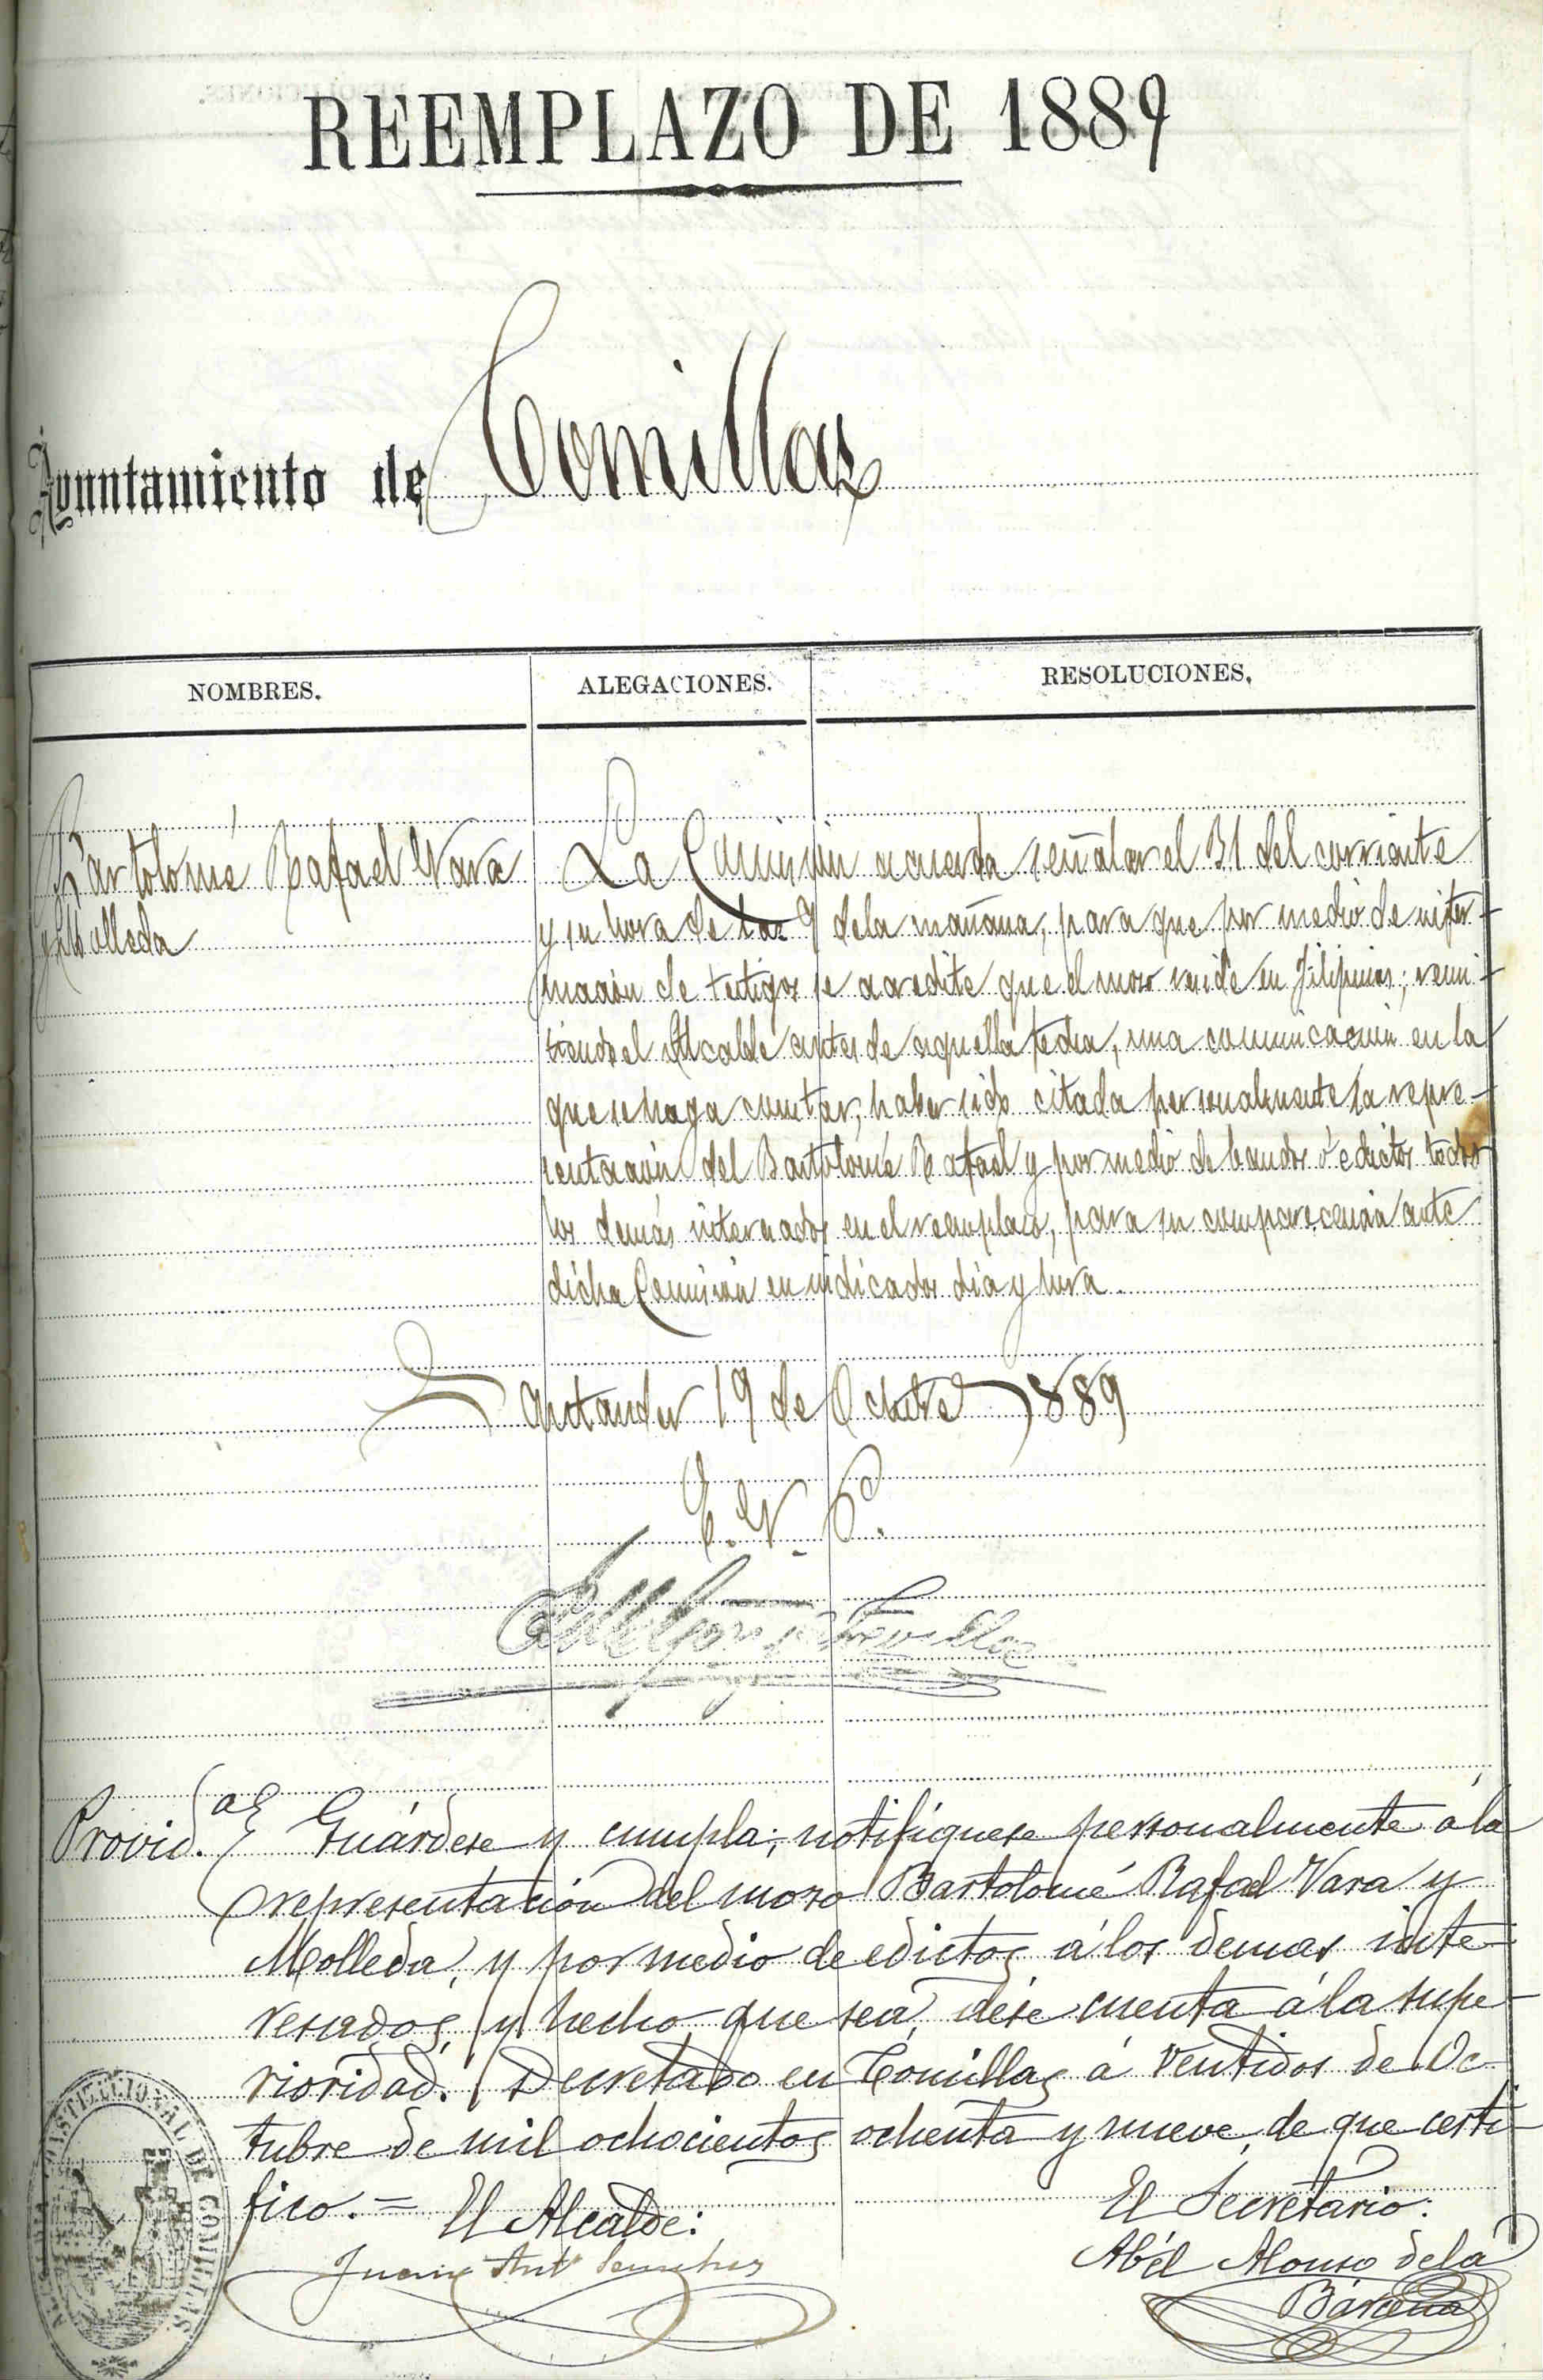 REEMPLAZO DE 1889
Ayuntamiento de Comillas
NOMBRES. ALEGACIONES. RESOLUCIONES.
Bartolomé Rafael Vara
y Molleda
La Comisión acuerda señalar el 31 del corriente
y su hora de las 9 dela mañana, para que por medio de infor-
mación de testigos se acredite que el mozo reside en Filipinas; remi-
tiendo el Alcalde antes de aquella fecha, una comunicación en la
que se haga constar, haber sido citada personalmente la repre-
sentación del Bartolomé Rafael y por medio de bandos ó edictos todos
los demás interesados en el reemplazo, para su comparecencia ante
dicha Comisión en indicados dia y hora.
Santander 19 de Octubre 1889
E. V. P.
Provid.a Guárdese y cumpla; notifíquese personalmente á la
representación del mozo Bartolomé Rafael Vara y
Molleda, y por medio de edictos á los demas inte-
resados, y hecho que sea, dése cuenta á la supe-
rioridad. Decretado en Comillas á ventidos de Oc-
tubre de mil ochocientos ochenta y nueve, de que certi-
fico. = El Alcalde: El Secretario:
Juan Ant.º Sanchez Abél Alonso dela
Bárcena
CONSTITUCIONAL DE COMILLAS